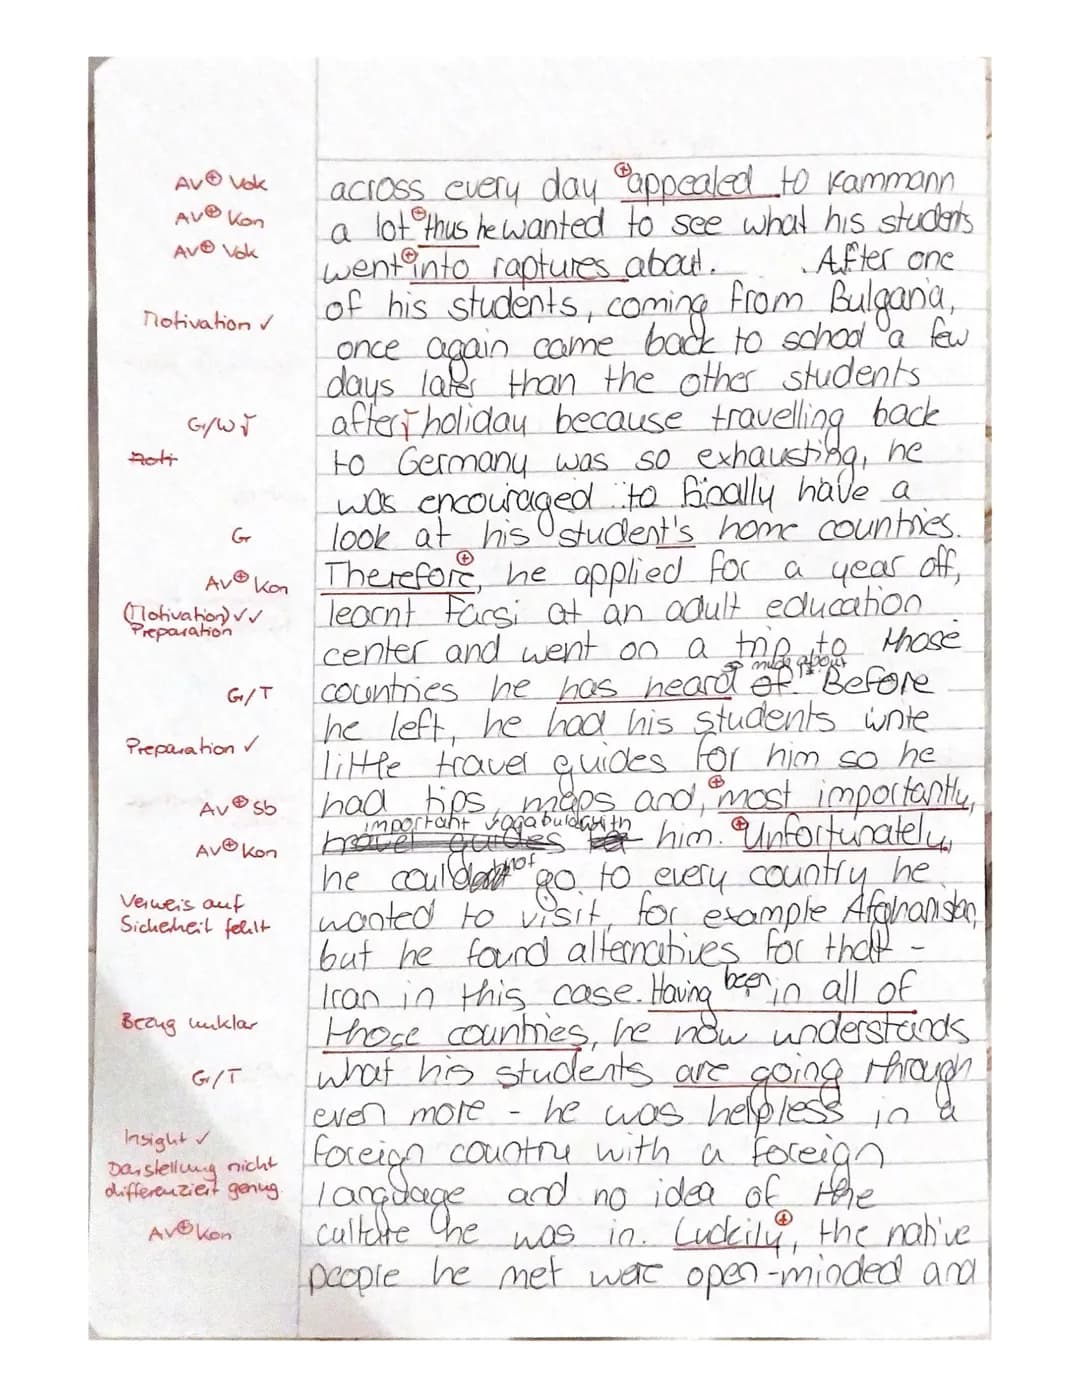 AV⊕ Vok across every day ⊕appealed to Kammann
AV⊕ Kon a lot ⊕thus he wanted to see what his students
AV⊕ Vok went ⊕into raptures about. After one
of his students, coming from Bulgaria,
Motivation ✓ once again came back to school a few
days later than the other students
G/W after holiday because travelling back
to Germany was so exhausting, he
was encouraged to finally have a
G look at his student's home countries.
AV⊕ Kon Therefore⊕, he applied for a year off,
(Motivation) ✓✓ learnt Farsi at an adult education
Preparation center and went on a trip to those
G/T countries he has heard so much about. Before
he left, he had his students write
Preparation ✓ little travel guides for him so he
AV⊕ Sb had tips, maps and, ⊕most importantly,
important vocabulary with
AV⊕ Kon travel guides him. ⊕Unfortunately,
he could not go to every country he
Verweis auf wanted to visit, for example Afghanistan,
Sicherheit fehlt but he found alternatives for that -
Iran in this case. Having been in all of
Bezug unklar those countries, he now understands
G/T what his students are going through
even more - he was helpless in a
Insight ✓ foreign country with a foreign
Darstellung nicht
differenziert genug language and no idea of the
AV⊕ Kon culture he was in. Luckily⊕, the native
people he met were open-minded and